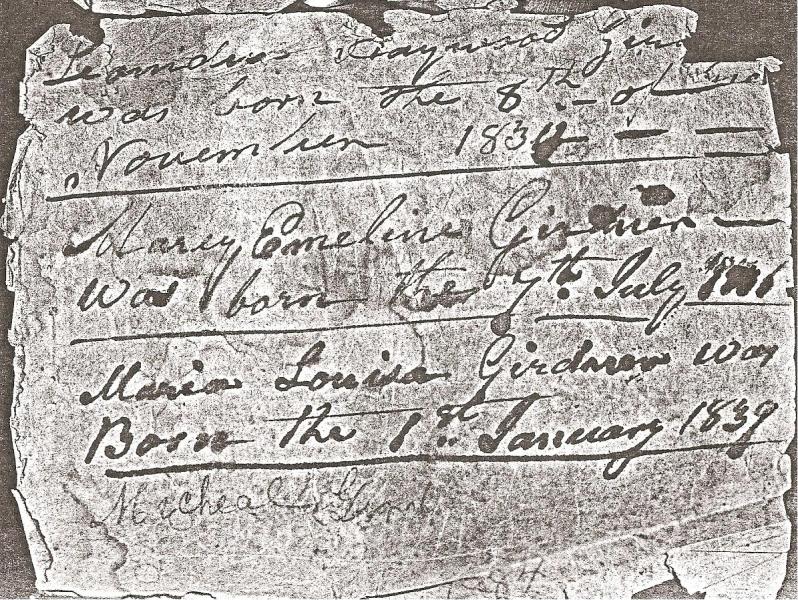 Leonidas Haywood Gir
was born the 8th - of
November 1834 - -
Marey Emeline Girdner -
was born the 7th July
Maria Louisa Girdner was
Born the 1st January 1839
Micheal